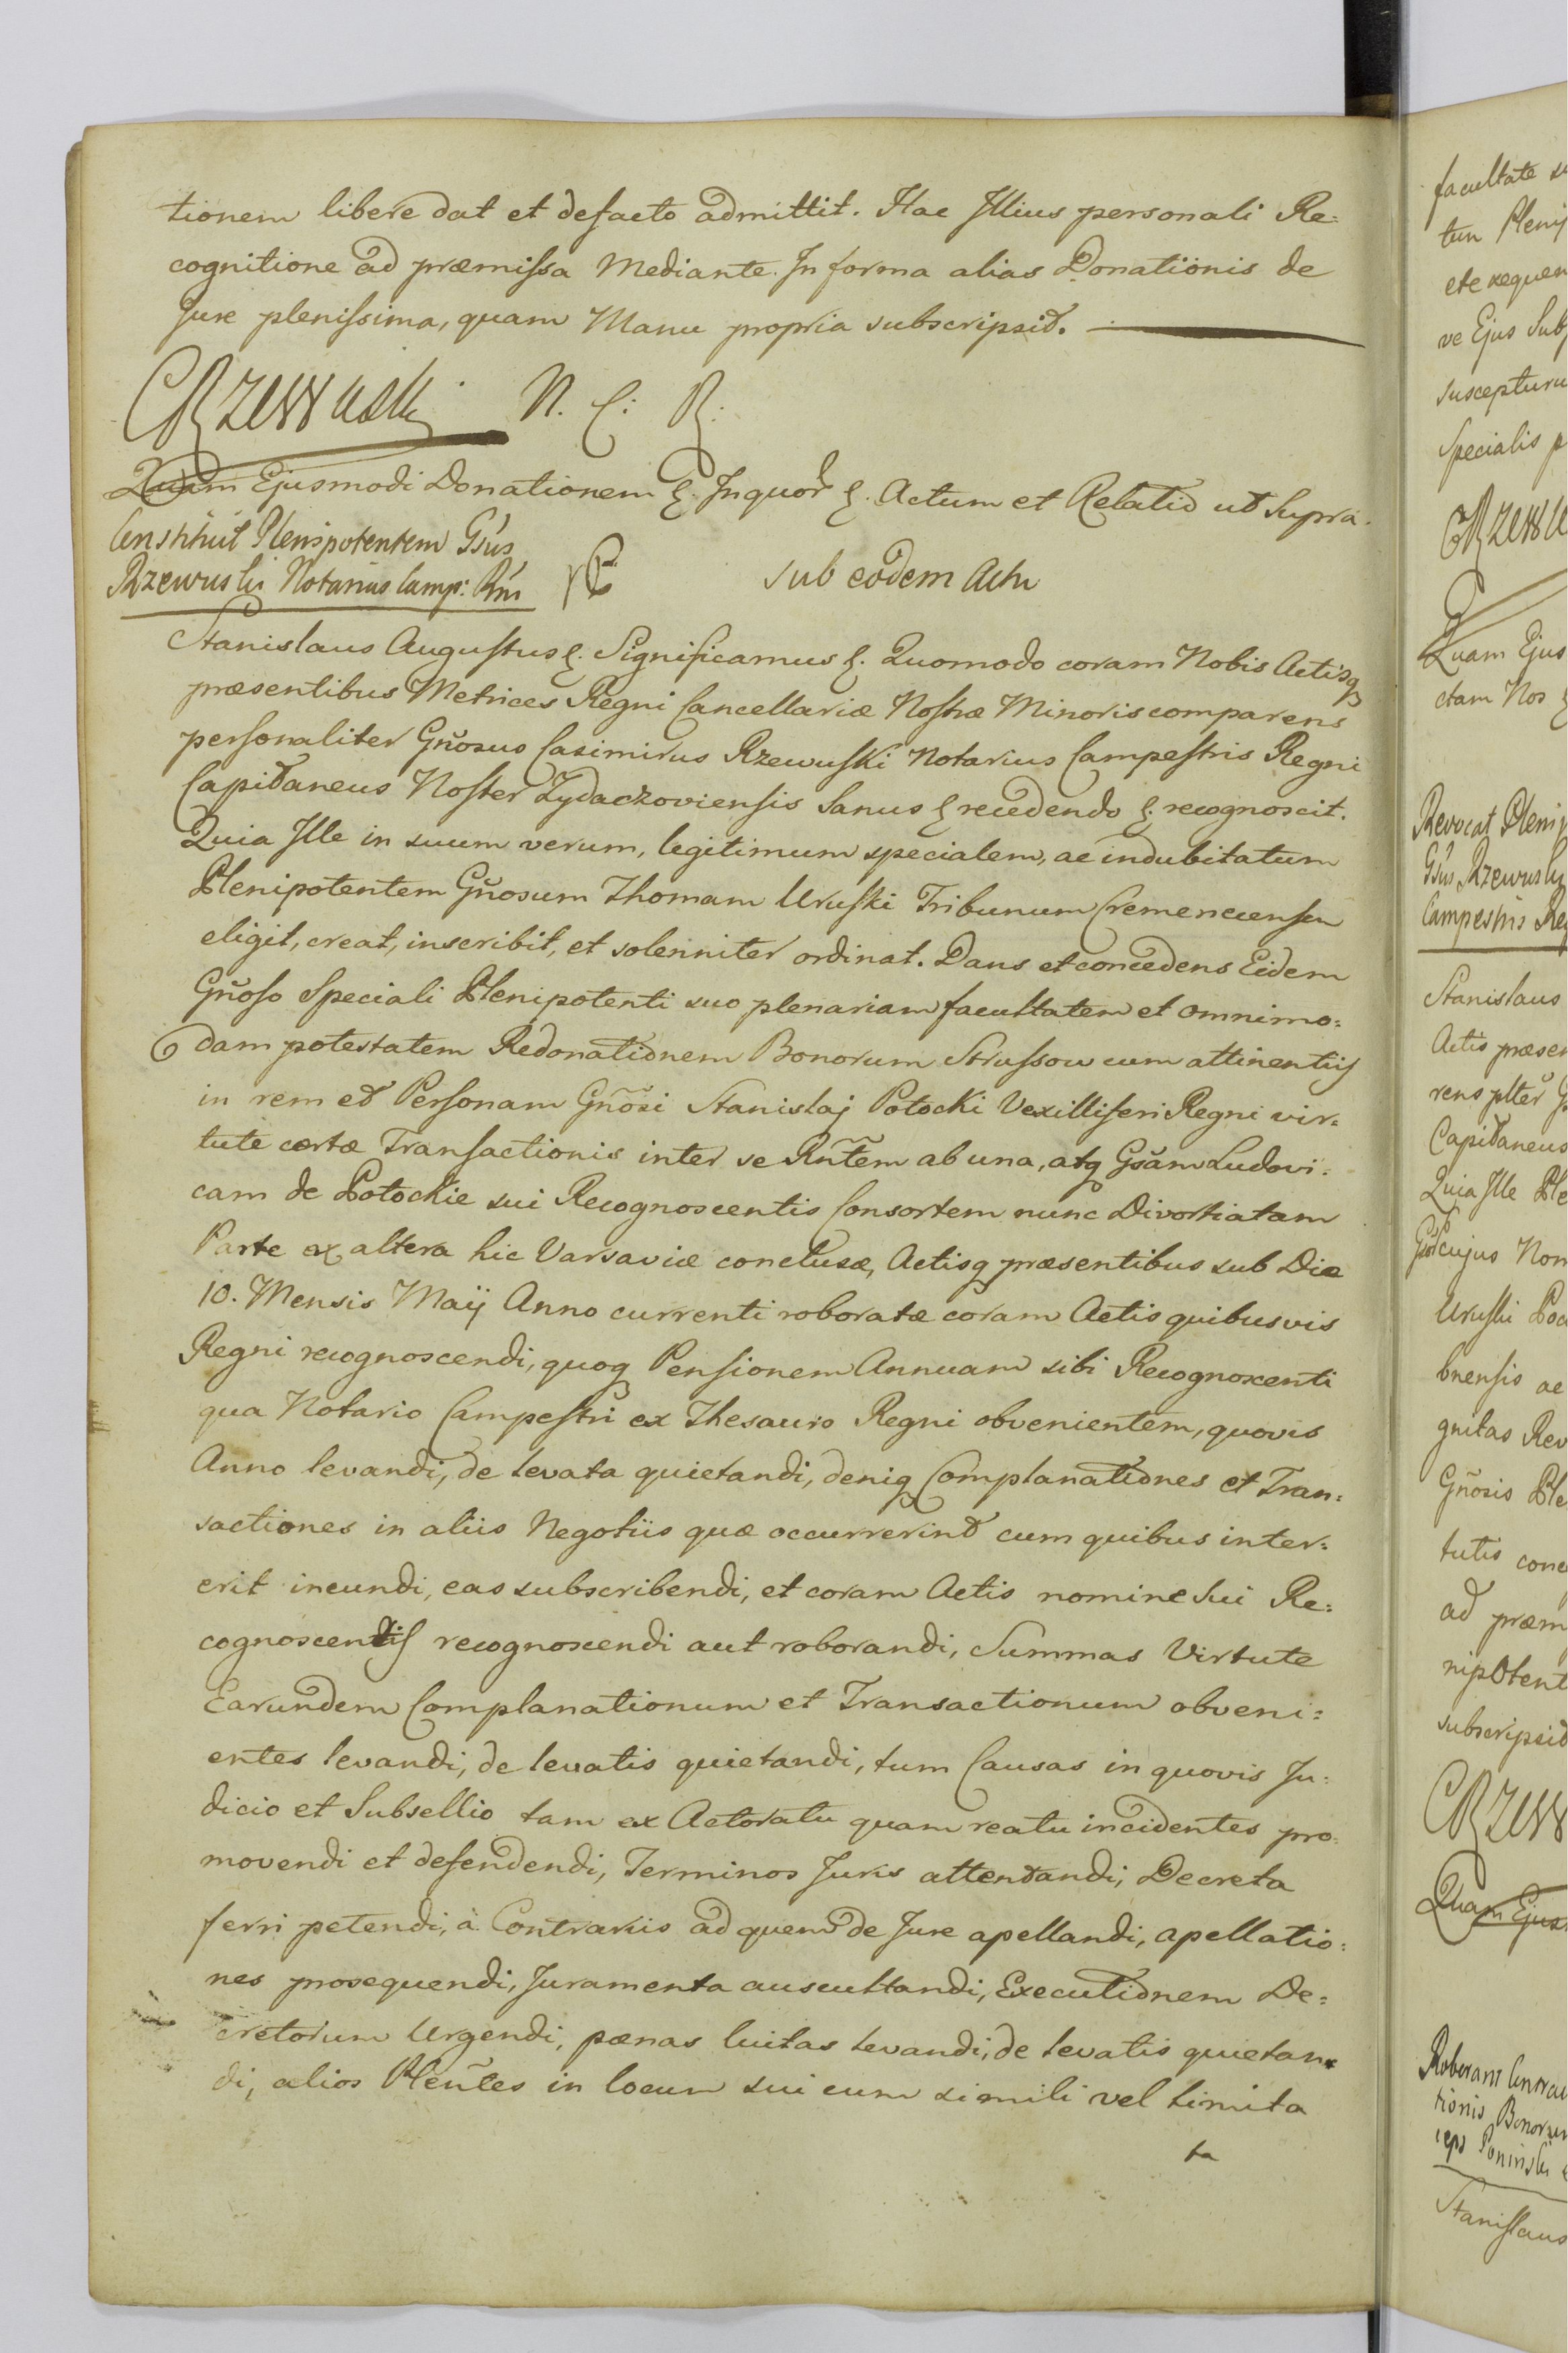 tionem libere dat et defacto admittit. Hac Illius personali Re:
cognitione ad præmissa Mediante. In forma alias Donationis de
Jure plenissima, quam Manu propria subscripsit.
CRzewuski N. C: R:
Quam Ejusmodi Donationem &. In quor &. Actum et Relatio ut Supra.
Constituit Plenipotentem Gsus
Rzewuski Notarius Camp: Rni
sub eodem Actu
Stanislaus Augustus &. Significamus &. Quomodo coram Nobis Actisq
præsentibus Metrices Regni Cancellariæ Nostræ Minoris comparens
personaliter Gñosus Casimirus Rzewuski Notarius Campestris Regni
Capitaneus Noster Zydaczoviensis Sanus & recedendo &. recognoscit.
Quia Ille in suum verum, legitimum specialem, ac indubitatum
Plenipotentem Gñosum Thomam Uruski Tribunum Cremenecensem
eligit, creat, inscribit, et solenniter ordinat. Dans et concedens Eidem
Gñoso Speciali Plenipotenti suo plenariam facultatem et omnimo:
dam potestatem Redonationem Bonorum Strussow cum attinentiis
in rem et Personam Gñosi Stanislaj Potocki Vexilliferi Regni vir:
tute certæ Transactionis inter se Rñtem ab una, atq Gsam Ludovi:
cam de Potockie sui Recognoscentis Consortem nunc Divortiatam
Parte ex altera hic Varsaviæ conclusæ, Actisq præsentibus sub Die
10. Mensis Maij Anno currenti roboratæ coram Actis quibusvis
Regni recognoscendi, quoq Pensionem Annuam sibi Recognoscenti
qua Notario Campestri ex Thesauro Regni obvenientem, quovis
Anno levandi, de levata quietandi, deniq Complanationes et Tran:
sactiones in aliis Negotiis quæ occurrerint cum quibus inter:
erit ineundi, eas subscribendi, et coram Actis nomine Sui Re:
cognoscentis recognoscendi aut roborandi, Summas Virtute
Earundem Complanationum et Transactionum obveni:
entes levandi, de levatis quietandi, tum Causas in quovis Ju:
dicio et Subsellio tam ex Actoratu quam reatu incidentes pro:
movendi et defendendi, Terminos Juris attentandi, Decreta
ferri petendi, à Contrariis ad quem de Jure apellandi, apellatio:
nes prosequendi, Juramenta auscultandi, Executionem De:
cretorum Urgendi, pænas luitas levandi, de levatis quietan:
di, alios Pleñtes in locum sui cum simili vel limita
ta
facultate
tum
ve Ejus
suscepturu
Specialis
Quam Ejus
ctam Nos
Revocat
Gsus Rzewuski
Campestris
Stanislaus
Actis præsen
rens plter
Capitaneus
Quia Ille
cujus Nom
Uruski
bnensis ac
gnitas Rev
Gñosis
tutis conc
ad præm
nipotent
subscripsit
CRzew
Quam Ejus
Roborant Contrac
tionis Bonorum
Poninski
Stanislaus